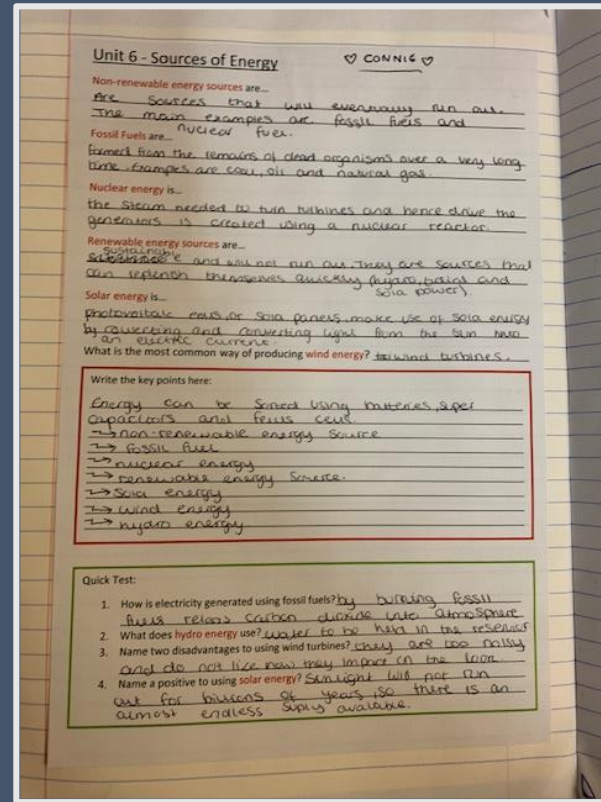 Unit 6 - Sources of Energy
♡ CONNIE ♡
Non-renewable energy sources are...
Are sources that will eventually run out.
The main examples are fossil fuels and
nuclear fuel.
Fossil Fuels are...
formed from the remains of dead organisms over a very long
time. Examples are coal, oil and natural gas.
Nuclear energy is...
the steam needed to turn turbines and hence drive the
generators is created using a nuclear reactor.
Renewable energy sources are...
sustainable and will not run out. They are sources that
can replenish themselves quickly (hydro, and
sola power).
Solar energy is...
photovoltaic cells, or sola panels, make use of sola energy
by and converting light from the sun
an electric current.
What is the most common way of producing wind energy? wind turbines.
Write the key points here:
Energy can be using batteries, super
capacitors and cells.
→ non-renewable energy source
→ fossil fuel
→ nuclear energy
→ renewable energy source.
→ sola energy
→ wind energy
→ hydro energy
Quick Test:
1. How is electricity generated using fossil fuels? by burning fossil
fuels carbon dioxide into atmosphere
2. What does hydro energy use? water to be held in the
3. Name two disadvantages to using wind turbines? they are too noisy
and do not like how they impact on the
4. Name a positive to using solar energy? Sunlight will not run
out for billions of years, so there is an
almost endless avalable.